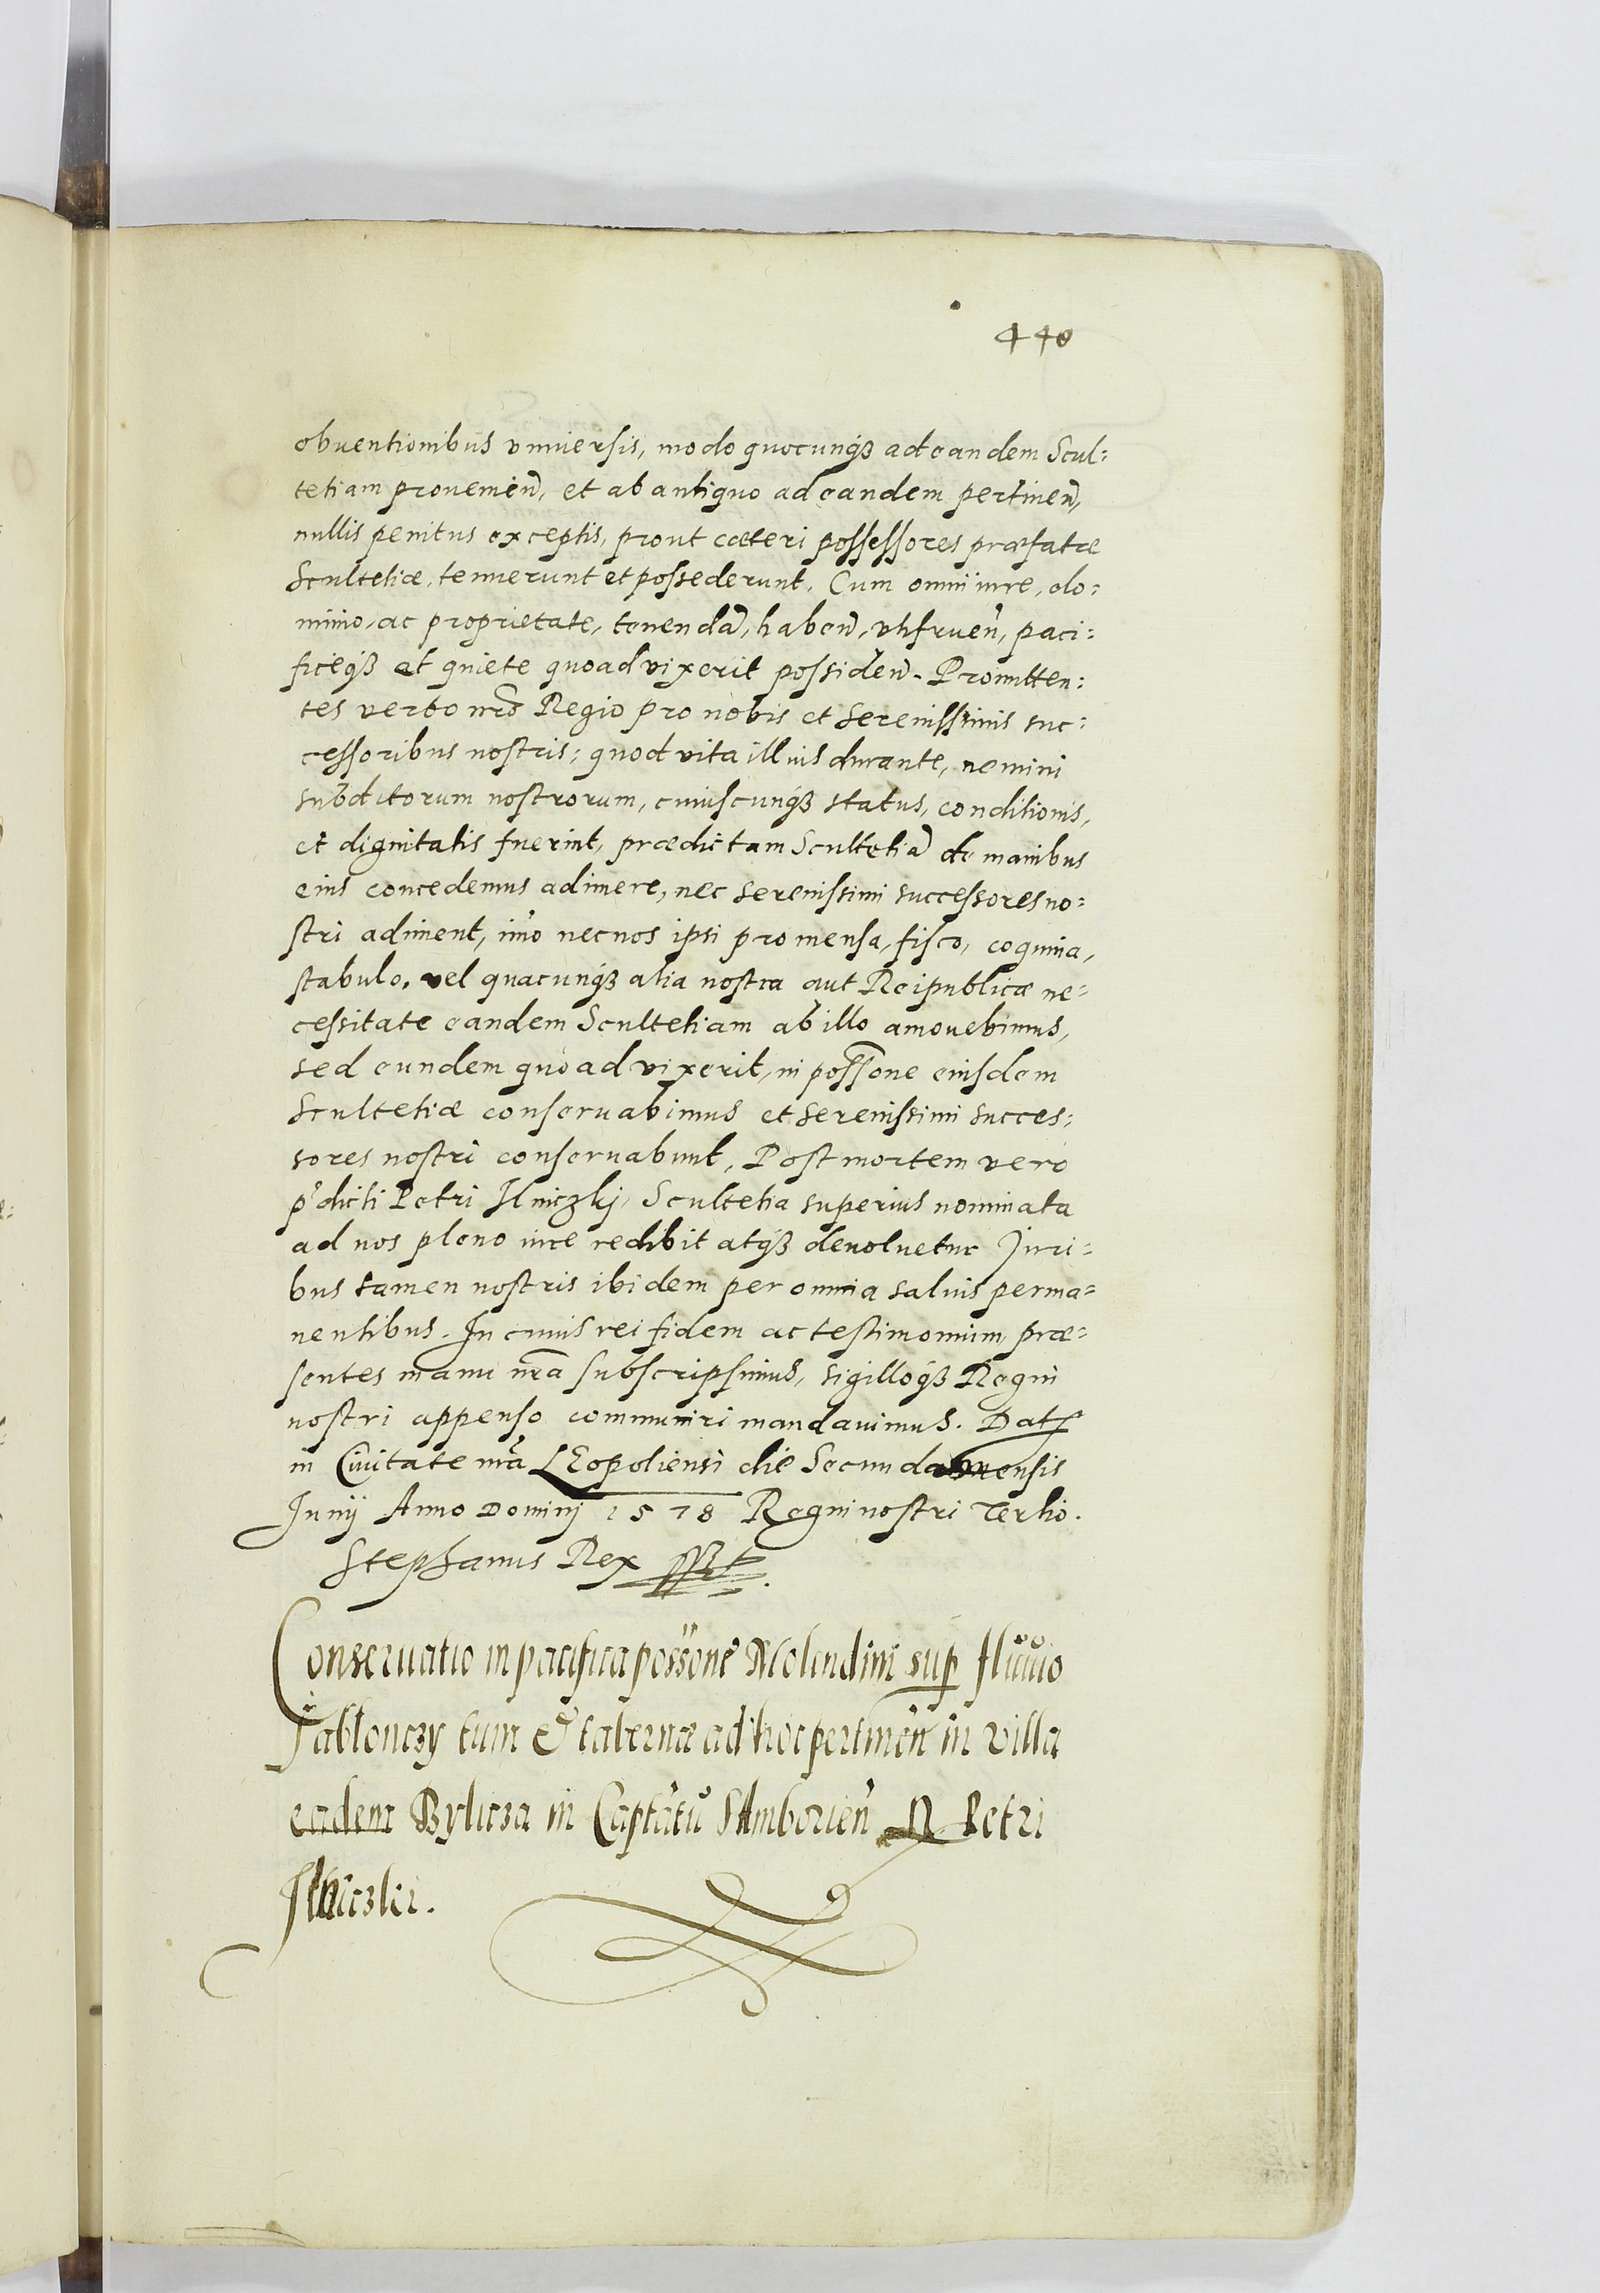 440
obuentionibus vniuersis, modo quocunq₃ ad eandem Scul=
tetiam prouenien̄, et ab antiquo ad eandem pertinen̄,
nullis penitus exceptis, prout cæteri possessores præfatæ
Scultetiæ, tenuerunt et possederunt. Cum omni iure, do=
minio, ac proprietate, tenendā, haben̄, vtifruen̄, paci=
ficeq₃ et quiete quoad vixerit possiden̄. Promitten=
tes verbo nr̄o Regio pro nobis et Serenissimis suc=
cessoribus nostris, quod vita illius durante, nemini
subditorum nostrorum, cuiuscunq₃ status, conditionis,
et dignitatis fuerint, prædictam Scultetiā de manibus
eius concedemus adimere, nec Serenissimi successores no=
stri adiment, imò nec nos ipsi pro mensa, fisco, coquina,
stabulo, vel quacunq₃ alia nostra aut Reipublicæ ne=
cessitate eandem Scultetiam ab illo amouebimus,
sed eundem quoad vixerit, in possōne eiusdem
Scultetiæ conseruabimus et Serenissimi succes=
sores nostri conseruabunt, Post mortem vero
p̄dicti Petri Ilniczkj, Scultetia superius nominata
ad nos pleno iure redibit atq₃ deuoluetur Juri=
bus tamen nostris ibidem per omnia saluis perma=
nentibus. In cuius rei fidem ac testimonium præ=
sentes manu nr̄a subscripsimus, sigilloq₃ Regni
nostri appenso communiri mandauimus. Dat
in Ciuitate nr̄a LEopoliensi die Secunda mensis
Junij Anno Dominj 1578 Regni nostri Tertio.
Stephanus Rex sst
Conseruatio in pacifica possōne Molendini sup fluuio
Jablonczy tum et tabernæ ad hoc pertinen̄ in villa
eadem Bylicza in Captātu SAmborien̄ N Petri
Ilniczkii.